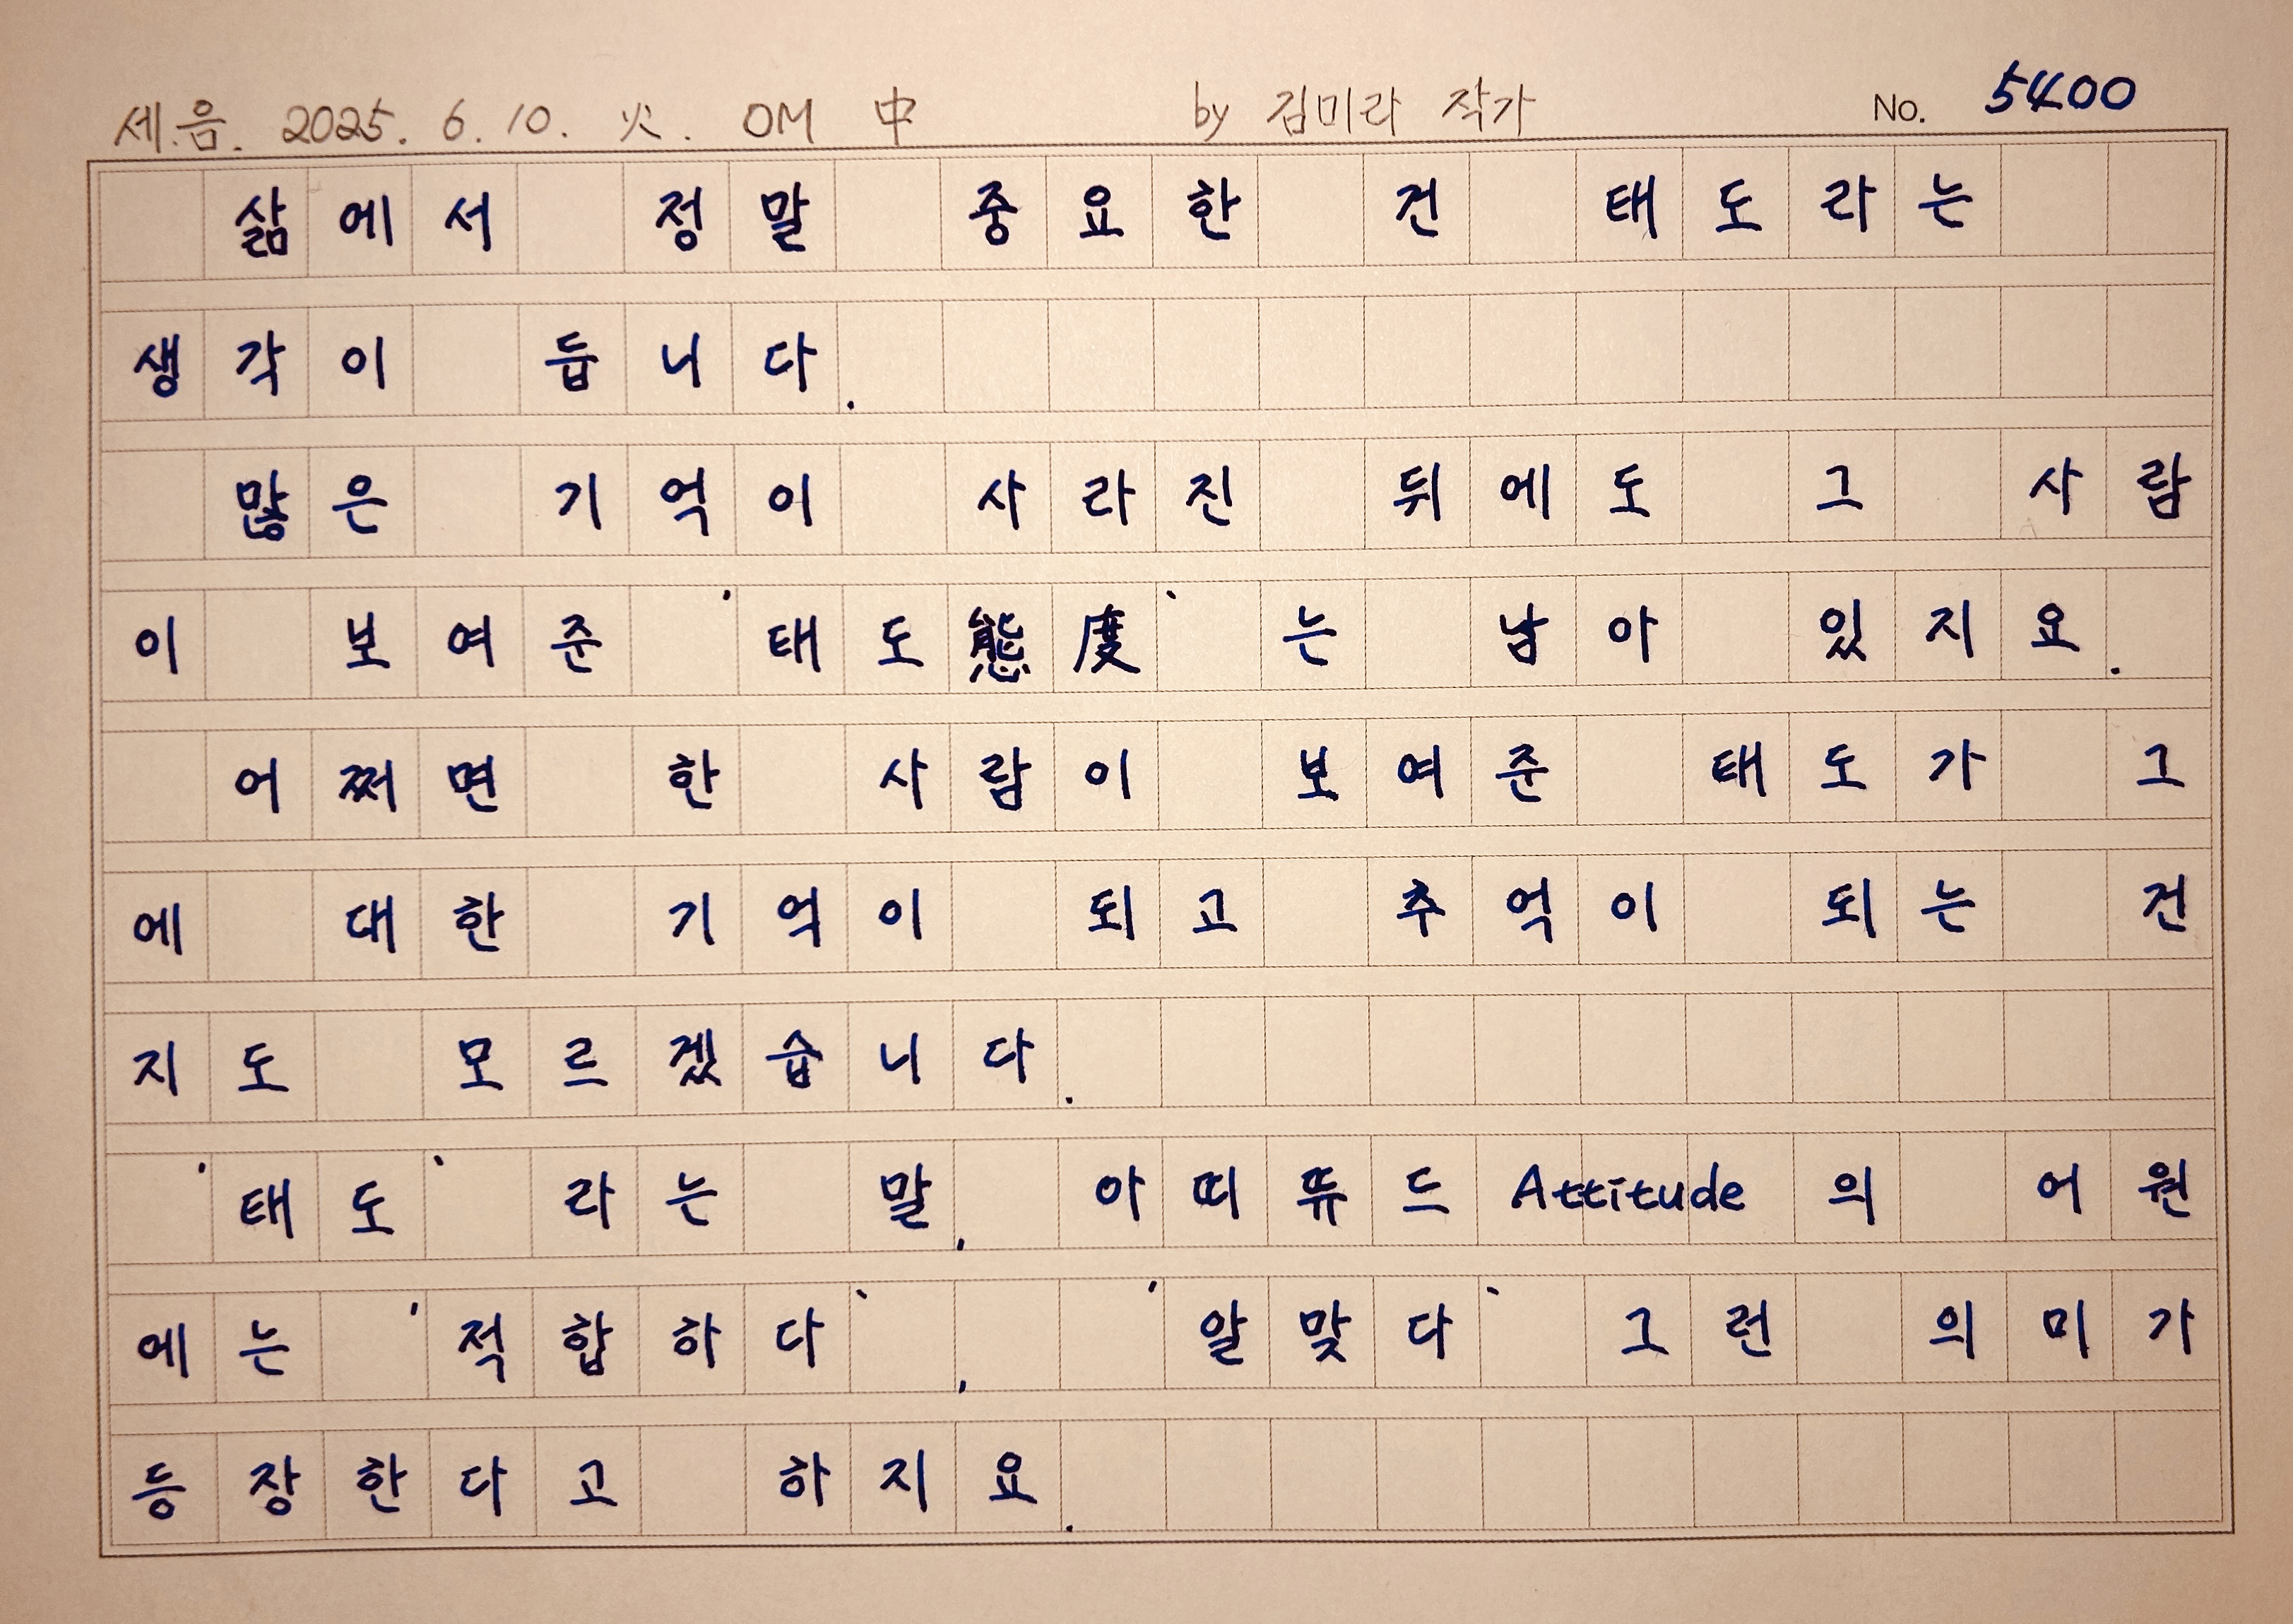 세.음. 2025. 6. 10. 火. OM 中 by 김미라 작가 No. 5400
삶에서 정말 중요한 건 태도라는
생각이 듭니다.
많은 기억이 사라진 뒤에도 그 사람
이 보여준 '태도態度'는 남아 있지요.
어쩌면 한 사람이 보여준 태도가 그
에 대한 기억이 되고 추억이 되는 건
지도 모르겠습니다.
'태도'라는 말, 아띠뜌드 Attitude의 어원
에는 '적합하다', '알맞다' 그런 의미가
등장한다고 하지요.